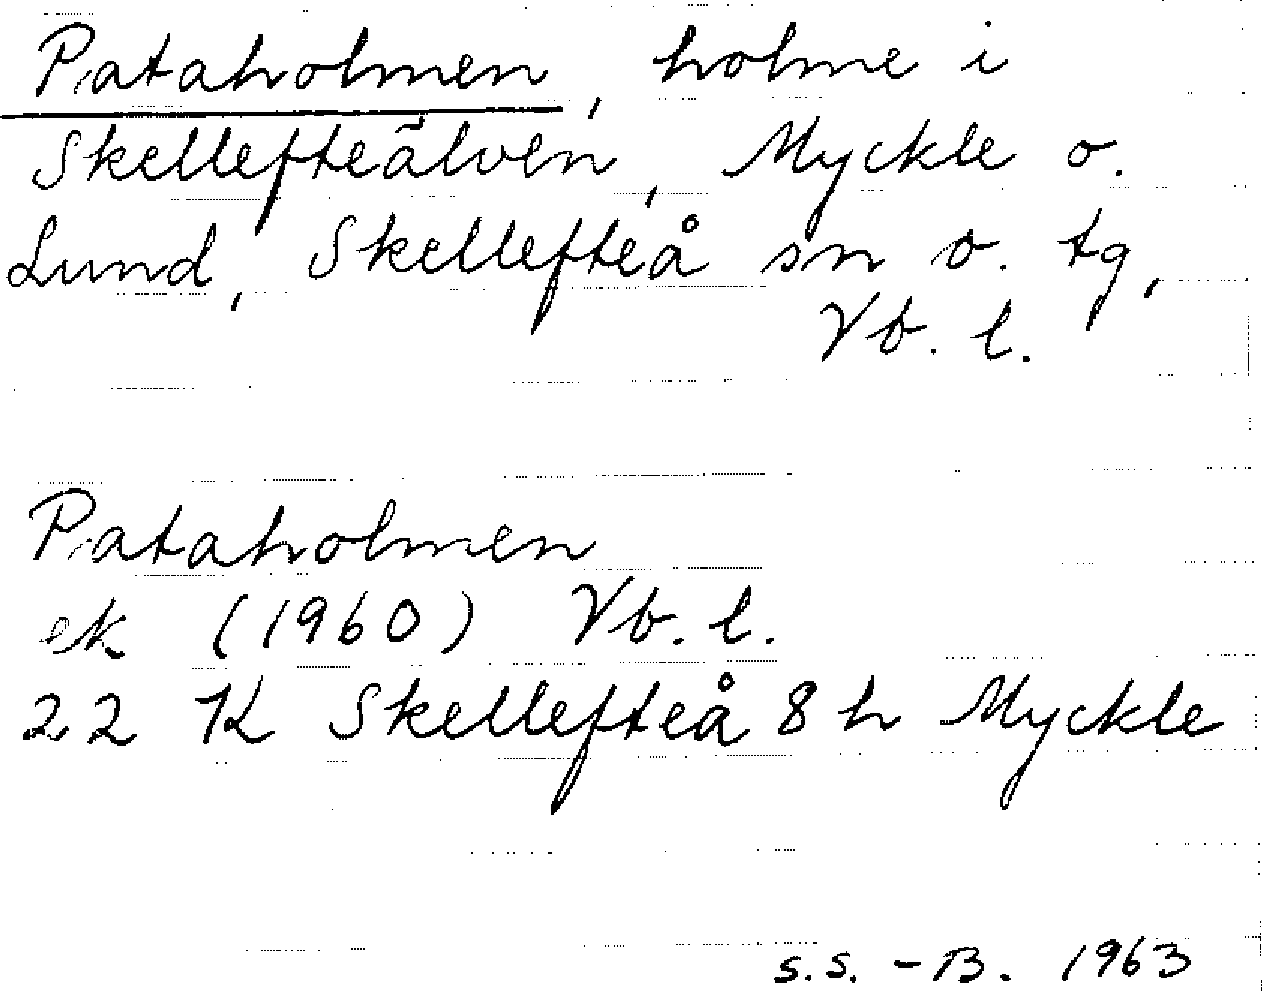 Pataholmen, holme i
Skellefteälven, Myckle o.
Lund, Skellefteå sn o. tg,
Vb. l.
Pataholmen
ek (1960) Vb. l.
22 K Skellefteå 8 h Myckle
S.S. - B. 1963